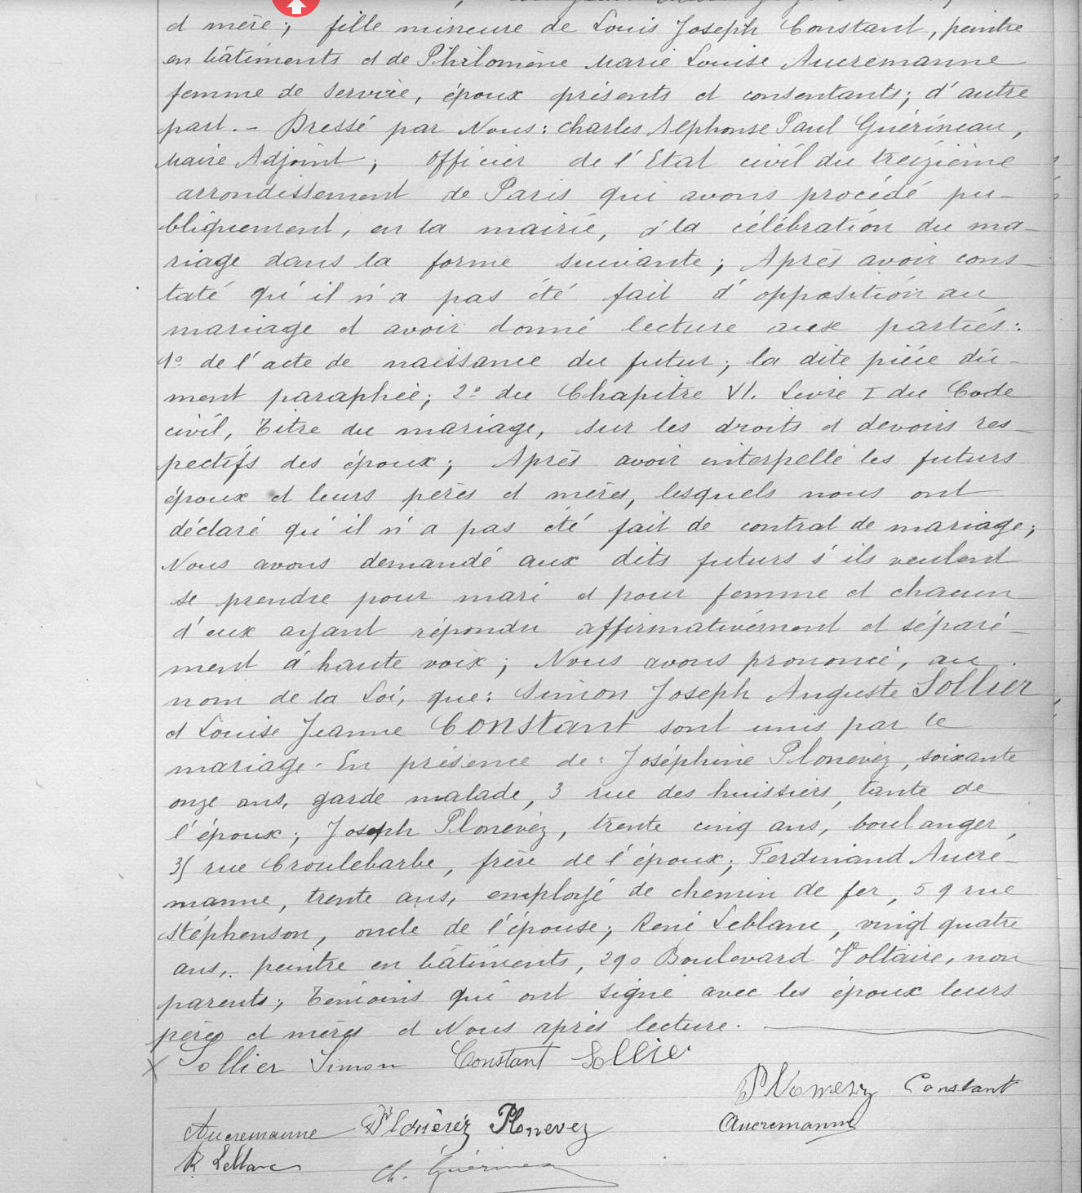 et mère; fille mineure de Louis Joseph Constant, peintre
en bâtiments et de Philomène Marie Louise Aucremanne
femme de service, époux présents et consentants; d'autre
part. - Dressé par Nous: Charles Alphonse Paul Guérineau,
Maire Adjoint, Officier de l'Etat civil du treizième
arrondissement de Paris qui avons procédé pu-
bliquement, en la mairie, à la célébration du ma-
riage dans la forme suivante; Après avoir cons-
taté qu'il n'a pas été fait d'opposition au
mariage et avoir donné lecture aux parties:
1º de l'acte de naissance du futur; la dite pièce dû-
ment paraphée; 2º du Chapitre VI. Livre I du Code
civil, Titre du mariage, sur les droits et devoirs res-
pectifs des époux; Après avoir interpellé les futurs
époux et leurs pères et mères, lesquels nous ont
déclaré qu'il n'a pas été fait de contrat de mariage;
Nous avons demandé aux dits futurs s'ils veulent
se prendre pour mari et pour femme et chacun
d'eux ayant répondu affirmativement et séparé-
ment à haute voix; Nous avons prononcé, au
nom de la Loi, que: Simon Joseph Auguste Sollier
et Louise Jeanne Constant sont unis par le
mariage. En présence de: Joséphine Plonévez, soixante
onze ans, garde malade, 3 rue des huissiers, tante de
l'époux; Joseph Plonévez, trente cinq ans, boulanger,
35 rue Croulebarbe, frère de l'époux; Ferdinand Aucre-
manne, trente ans, employé de chemin de fer, 59 rue
Stéphenson, oncle de l'épouse; René Leblanc, vingt quatre
ans, peintre en bâtiments, 290 Boulevard Voltaire, non
parents; Témoins qui ont signé avec les époux leurs
pères et mères et Nous après lecture.
Sollier Simon Constant Sollier
Plonevez Constant
Aucremanne Plonévez Plonevez Aucremanne
R Leblanc Ch. Guérineau